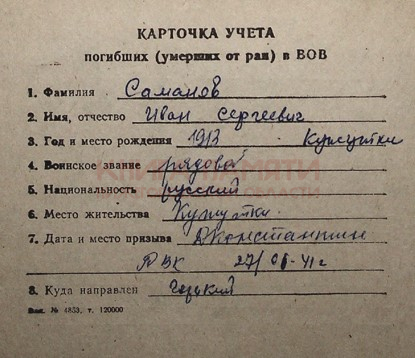 КАРТОЧКА УЧЕТА
погибших (умерших от ран) в ВОВ
1. Фамилия Саманов
2. Имя, отчество Иван Сергеевич
3. Год и место рождения 1913
4. Воинское звание рядовой
КНИГА ПАМЯТИ
5. Национальность русский
ОБЛАСТИ
6. Место жительства
7. Дата и место призыва Д Константин
РВК 27/
8. Куда направлен Горький
Вып. № 4853. т. 120000